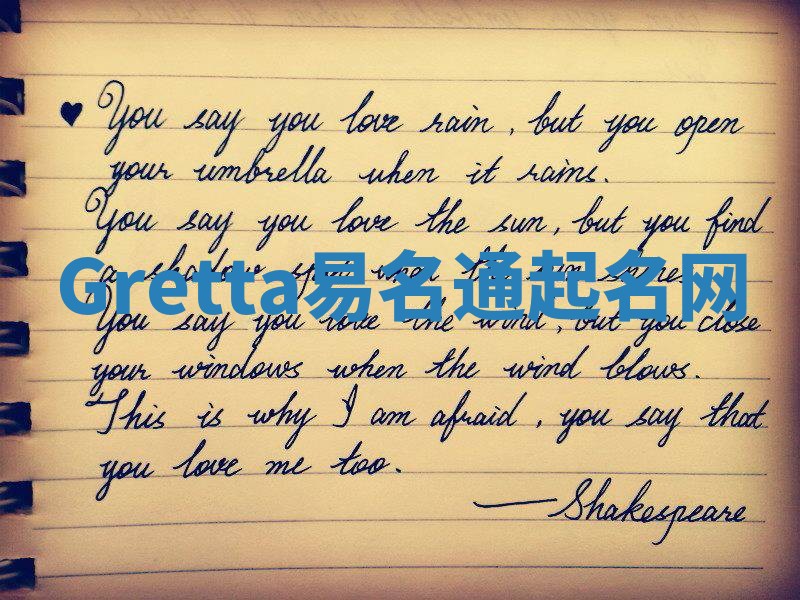 ♥ You say you love rain, but you open
your umbrella when it rains.
You say you love the sun, but you find
a shadow spot when the sun shines.
Gretta易名通起名网
You say you love the wind, but you close
your windows when the wind blows.
This is why I am afraid, you say that
you love me too.
—Shakespeare